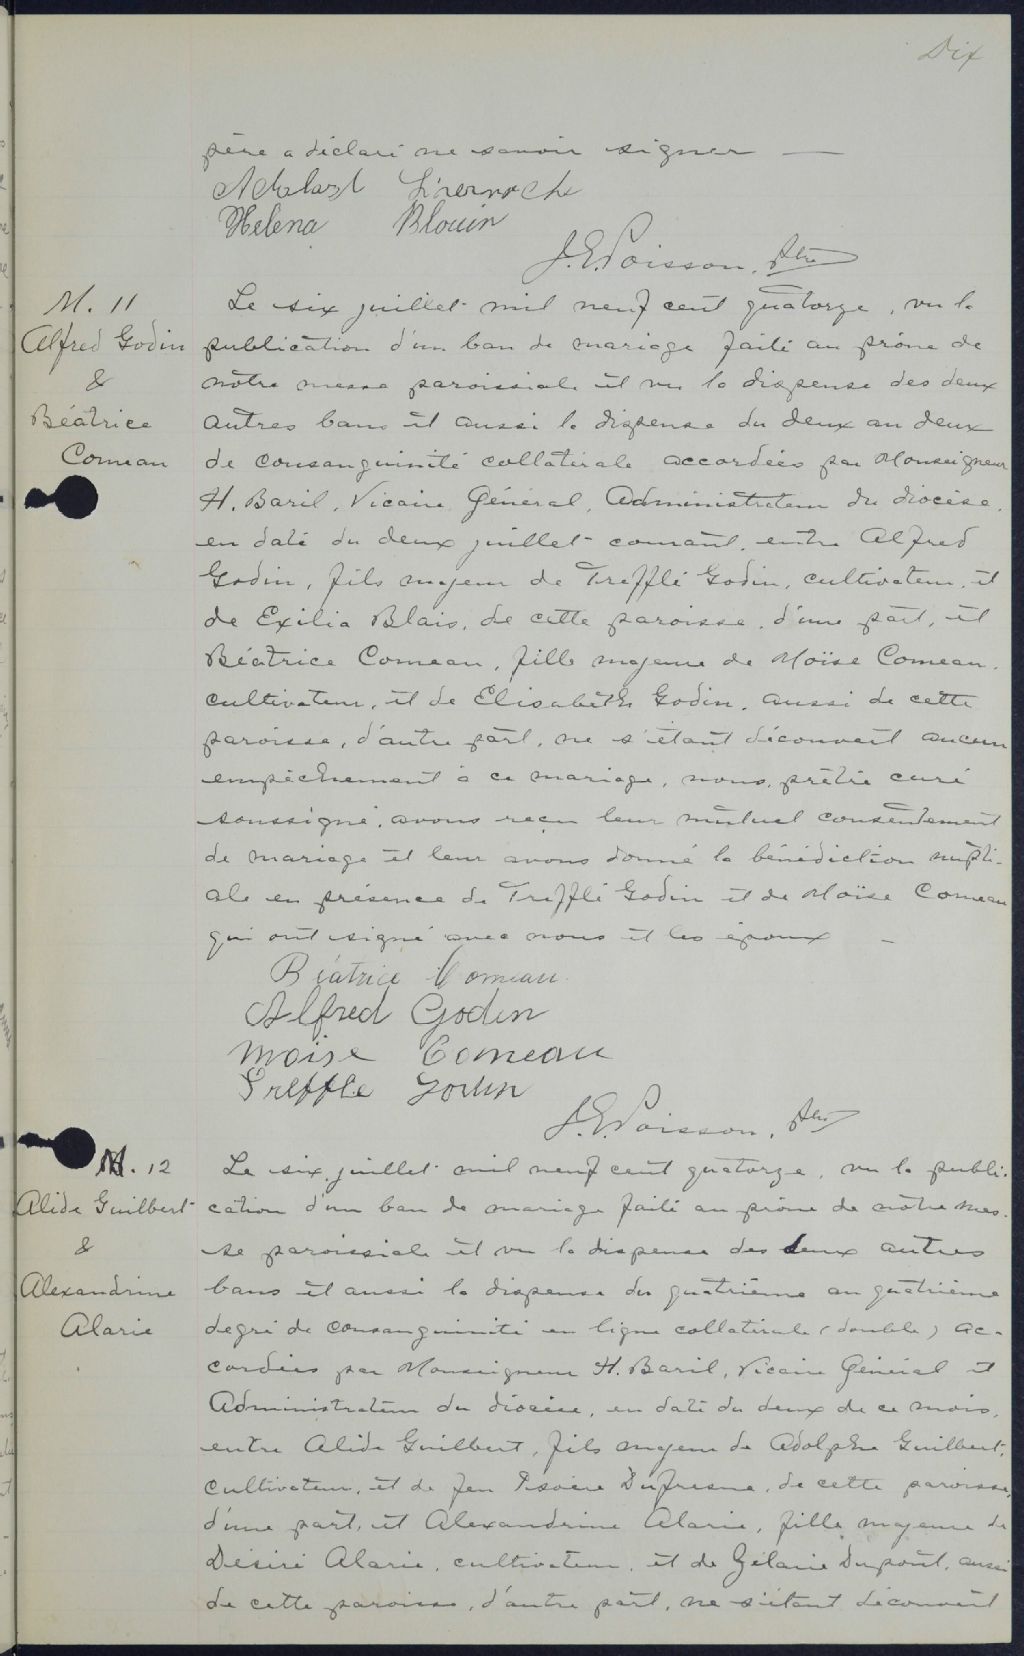 Dix
père a déclaré ne savoir signer —
Helena Blouin
J.E. Poisson, Ptre
M. 11
Alfred Godin
&
Béatrice
Comeau
Le six juillet mil neuf cent quatorze, vu la
publication d'un ban de mariage faite au prône de
notre messe paroissiale et vu la dispense des deux
autres bans et aussi la dispense du deux au deux
de consanguinité collatérale accordées par Monseigneur
H. Baril, Vicaire Général, Administrateur du diocèse,
en date du deux juillet courant, entre Alfred
Godin, fils majeur de Trefflé Godin, cultivateur, et
de Exilia Blais, de cette paroisse, d'une part, et
Béatrice Comeau, fille majeure de Moïse Comeau,
cultivateur, et de Élisabeth Godin, aussi de cette
paroisse, d'autre part, ne s'étant découvert aucun
empêchement à ce mariage, nous, prêtre curé
soussigné, avons reçu leur mutuel consentement
de mariage et leur avons donné la bénédiction nupti-
ale en présence de Trefflé Godin et de Moïse Comeau
qui ont signé avec nous et les époux —
Béatrice Comeau
Alfred Godin
Moise Comeau
Treffle Godin
J.E. Poisson, Ptre
M. 12
Alide Guilbert
&
Alexandrine
Alarie
Le six juillet mil neuf cent quatorze, vu la publi-
cation d'un ban de mariage faite au prône de notre mes-
se paroissiale et vu la dispense des deux autres
bans et aussi la dispense du quatrième au quatrième
degré de consanguinité en ligne collatérale (double) ac-
cordées par Monseigneur H. Baril, Vicaire Général et
Administrateur du diocèse, en date du deux de ce mois,
entre Alide Guilbert, fils majeur de Adolphe Guilbert,
cultivateur, et de feu Dufresne, de cette paroisse,
d'une part, et Alexandrine Alarie, fille majeure de
Désiré Alarie, cultivateur, et de Gélanie Dupont, aussi
de cette paroisse, d'autre part, ne s'étant découvert